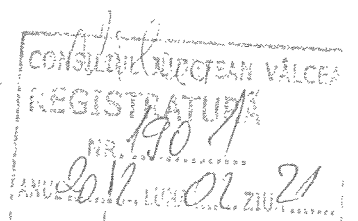 CONSILIUL JUDEȚEAN VÂLCEA
REGISTRATURĂ
NR. 1901
ANUL 2012 LUNA 02 ZIUA 21